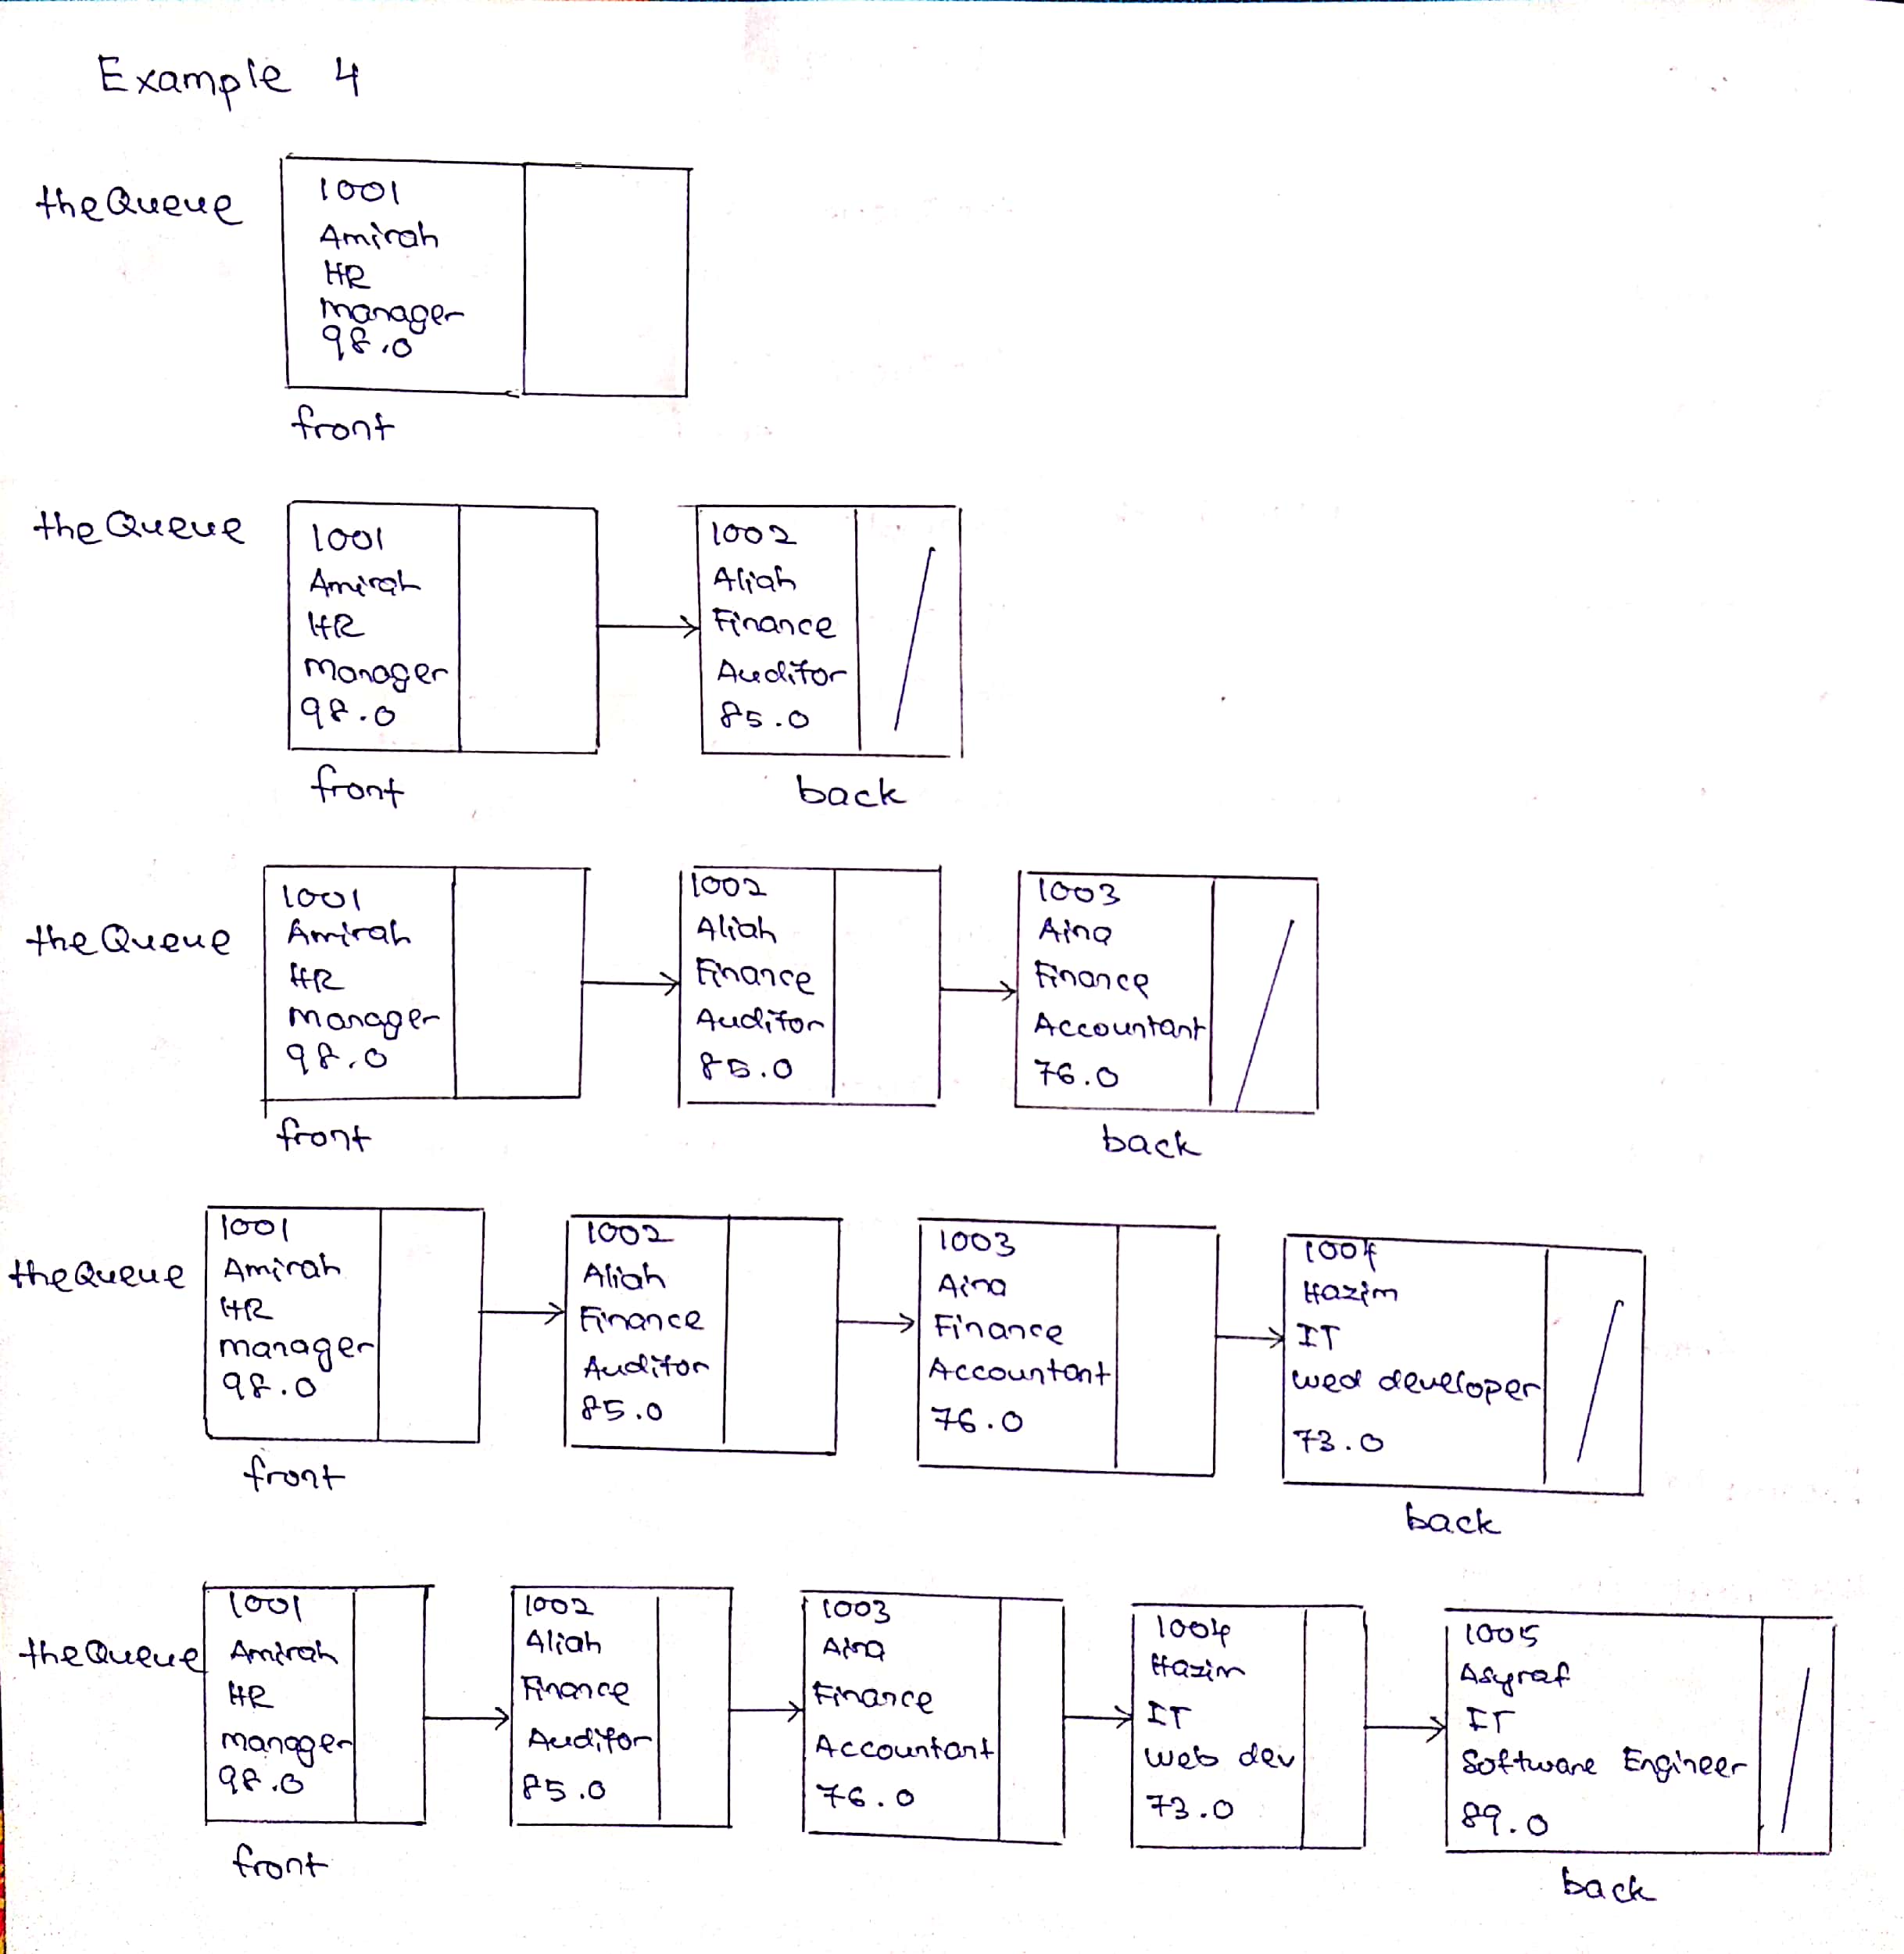 Example 4
theQueue
1001
Amirah
HR
manager
98.0
front
theQueue
1001
Amirah
HR
manager
98.0
front
1002
Aliah
Finance
Auditor
85.0
back
theQueue
1001
Amirah
HR
manager
98.0
front
1002
Aliah
Finance
Auditor
85.0
1003
Aina
Finance
Accountant
76.0
back
theQueue
1001
Amirah
HR
manager
98.0
front
1002
Aliah
Finance
Auditor
85.0
1003
Aina
Finance
Accountant
76.0
1004
Hazim
IT
wed developer
73.0
back
theQueue
1001
Amirah
HR
manager
98.0
front
1002
Aliah
Finance
Auditor
85.0
1003
Aina
Finance
Accountant
76.0
1004
Hazim
IT
web dev
73.0
1005
Asyraf
IT
Software Engineer
89.0
back